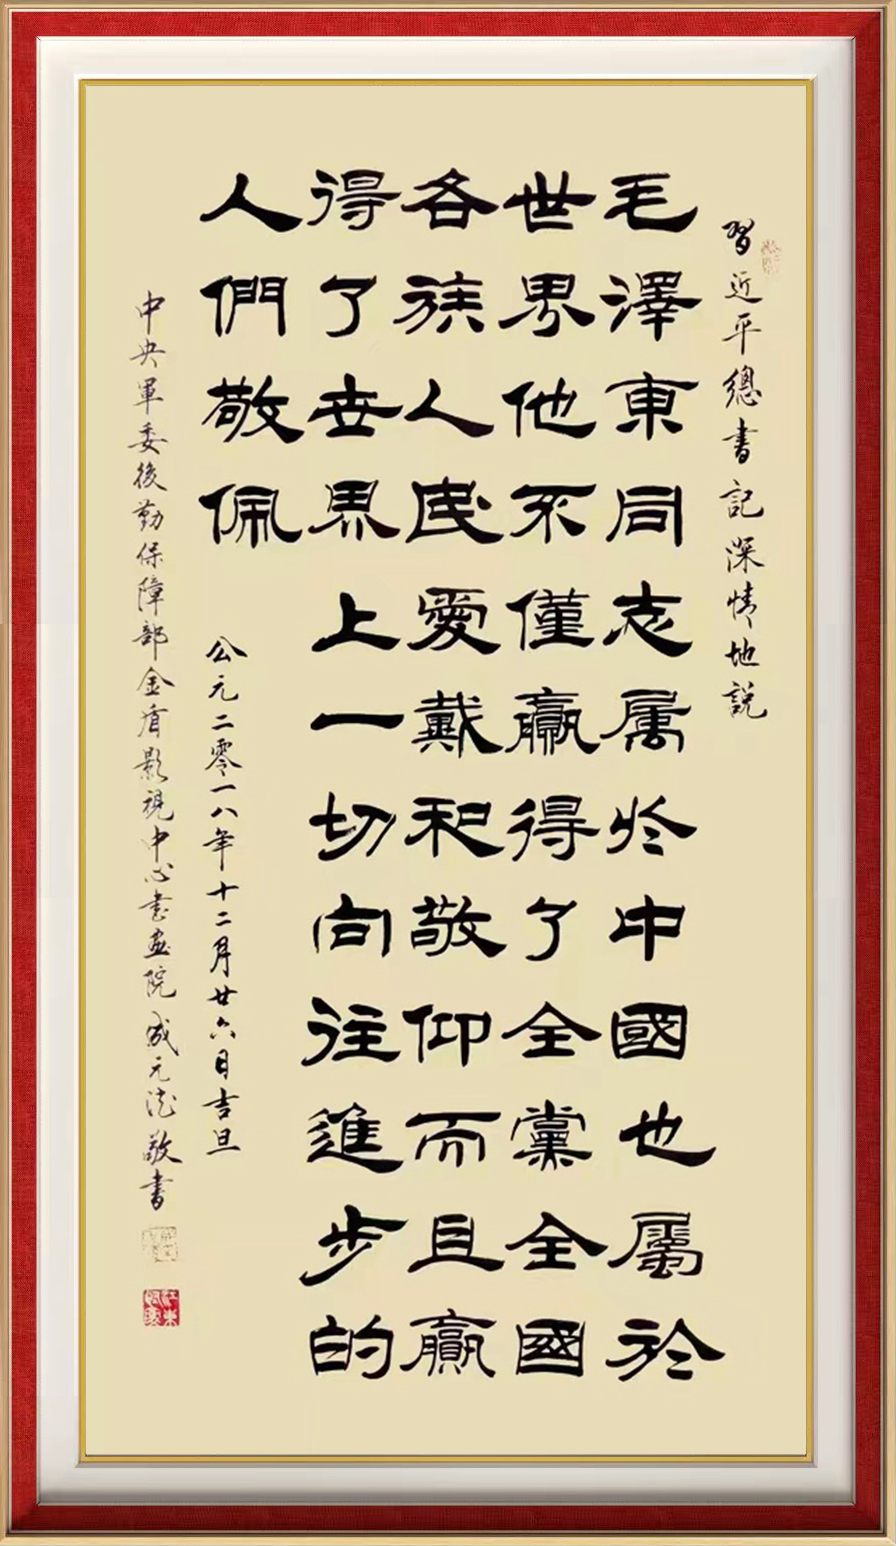 習近平總書記深情地説
毛澤東同志属於中國也屬於
世界他不僅贏得了全黨全國
各族人民愛戴和敬仰而且贏
得了世界上一切向往進步的
人們敬佩
公元二零一八年十二月廿六日吉旦
中央軍委後勤保障部金盾影視中心書畫院成元法敬書